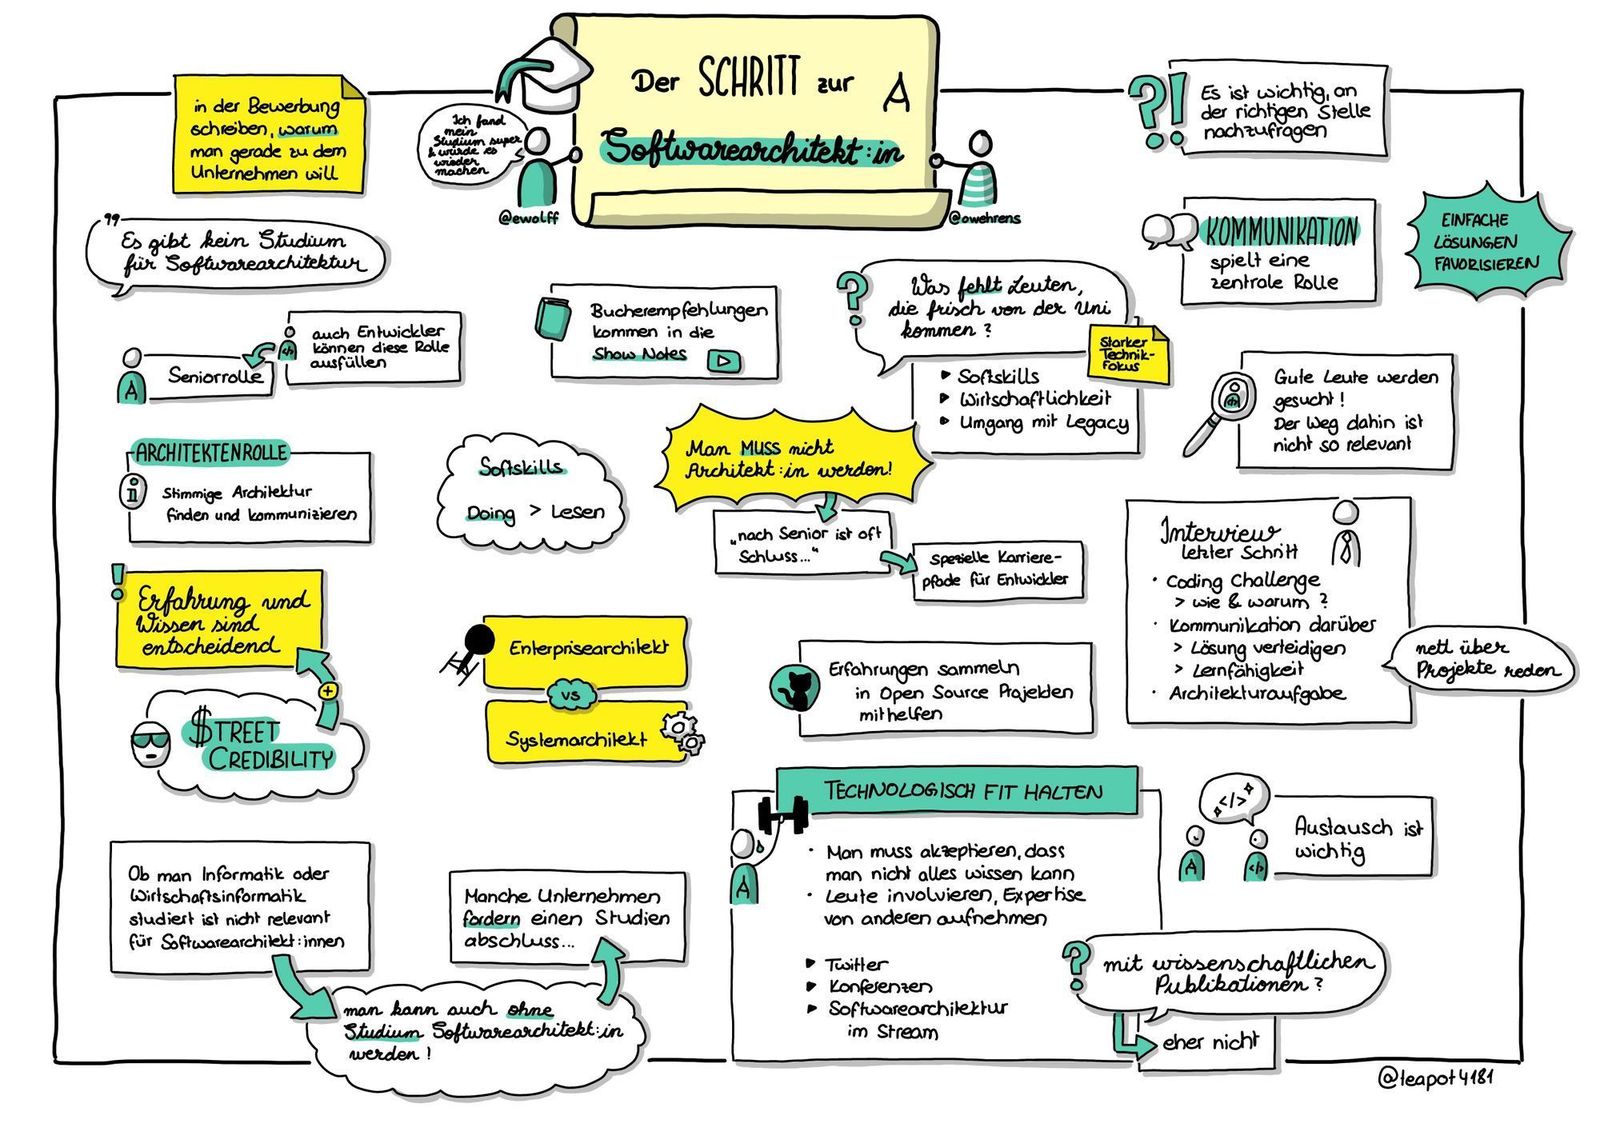 Der SCHRITT zur A
Softwarearchitekt:in
Ich fand
mein
Studium super
& würde es
wieder
machen
@ewolff
@owehrens
in der Bewerbung
schreiben, warum
man gerade zu dem
Unternehmen will
Es ist wichtig, an
der richtigen Stelle
nachzufragen
Es gibt kein Studium
für Softwarearchitektur
KOMMUNIKATION
spielt eine
zentrale Rolle
EINFACHE
LÖSUNGEN
FAVORISIEREN
Seniorrolle
A
auch Entwickler
können diese Rolle
ausfüllen
</>
Bucherempfehlungen
kommen in die
Show Notes
Was fehlt Leuten,
die frisch von der Uni
kommen?
Starker
Technik-
fokus
Softskills
Wirtschaftlichkeit
Umgang mit Legacy
</>
Gute Leute werden
gesucht!
Der Weg dahin ist
nicht so relevant
ARCHITEKTENROLLE
i
Stimmige Architektur
finden und kommunizieren
Softskills
Doing > Lesen
Man MUSS nicht
Architekt:in werden!
„nach Senior ist oft
Schluss..."
spezielle Karriere-
pfade für Entwickler
Interview
letzter Schritt
· Coding Challenge
> wie & warum?
· Kommunikation darüber
> Lösung verteidigen
> Lernfähigkeit
· Architekturaufgabe
nett über
Projekte reden
! Erfahrung und
Wissen sind
entscheidend
+
$TREET
CREDIBILITY
Enterprisearchitekt
vs
Systemarchitekt
Erfahrungen sammeln
in Open Source Projekten
mithelfen
TECHNOLOGISCH FIT HALTEN
A
· Man muss akzeptieren, dass
man nicht alles wissen kann
· Leute involvieren, Expertise
von anderen aufnehmen
Twitter
Konferenzen
Softwarearchitektur
im Stream
</>
A
</>
Austausch ist
wichtig
? mit wissenschaftlichen
Publikationen?
eher nicht
Ob man Informatik oder
Wirtschaftsinformatik
studiert ist nicht relevant
für Softwarearchitekt:innen
Manche Unternehmen
fordern einen Studien
abschluss...
man kann auch ohne
Studium Softwarearchitekt:in
werden!
@teapot4181